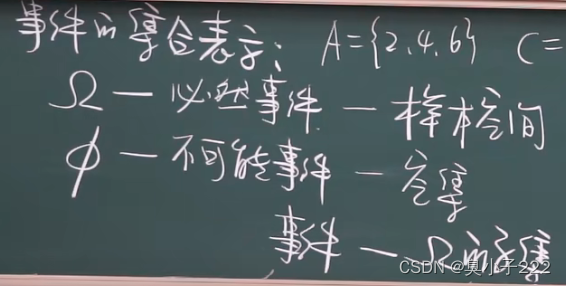 事件的集合表示： A={2,4,6} C=
Ω — 必然事件 — 样本空间
φ — 不可能事件 — 空集
事件 — Ω的子集
CSDN @莫小子222